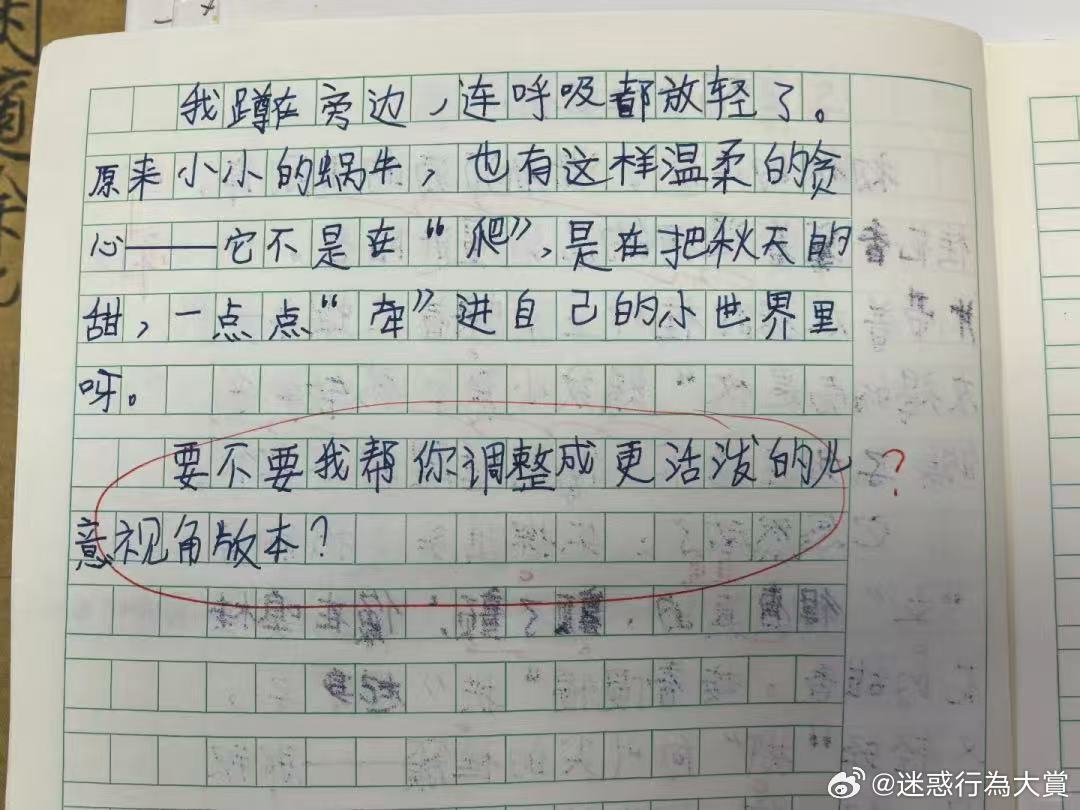 我蹲在旁边，连呼吸都放轻了。
原来小小的蜗牛，也有这样温柔的贪
心——它不是在“爬”，是在把秋天的
甜，一点点“牵”进自己的小世界里
呀。
要不要我帮你调整成更活泼的儿
意视角版本？
?
@迷惑行為大賞